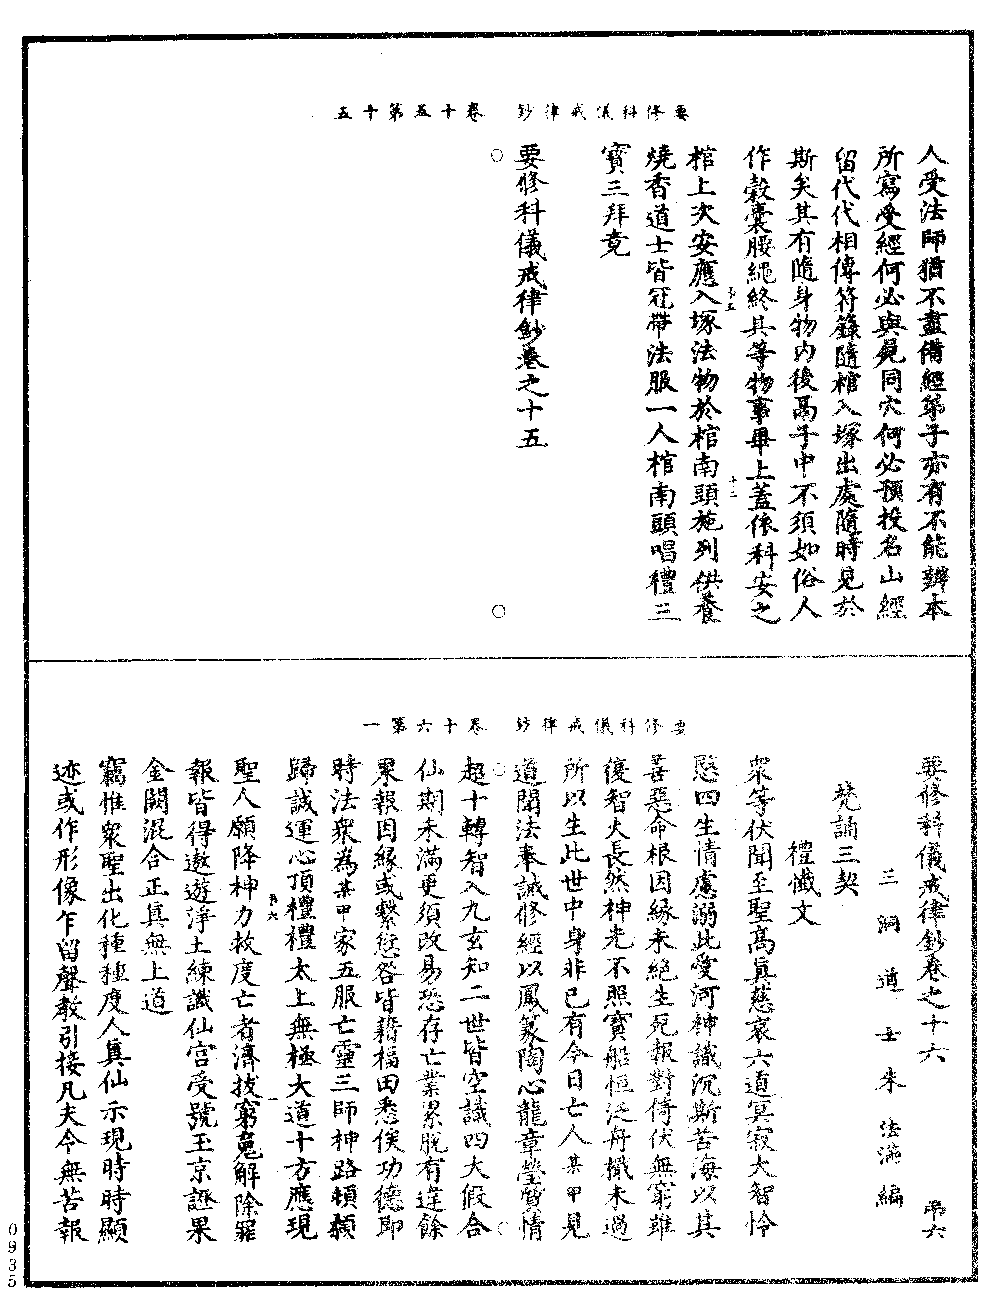 要修科儀戒律鈔　卷十五第十五
人受法師猶不盡備經弟子亦有不能辦本
所寫受經何必與屍同穴何必預投名山經
留代代相傳符籙隨棺入塚出處隨時見於
斯矣其有隨身物內後高子中不須如俗人
作縠囊腰繩終其等物事畢上蓋依科安之
棺上次安應入塚法物於棺南頭施列供養
燒香道士皆冠帶法服一人棺南頭唱禮三
寶三拜竟
要修科儀戒律鈔卷之十五
要修科儀戒律鈔　卷十六第一
要修科儀戒律鈔卷之十六　弟六
三洞道士朱法滿編
梵誦三契
禮懺文
眾等伏聞至聖高真慈哀六道冥寂大智怜
愍四生情慮溺此愛河神識沉斯苦海以其
善惡命根因緣未絕生死報對倚伏無窮雖
復智火長然神光不照寶船恒泛舟檝未過
所以生此世中身非已有今日亡人某甲見
道聞法奉誡修經以鳳篆陶心龍章瑩質情
超十轉智入九玄知二世皆空識四大假合
仙期未滿更須改易恐存亡業累脫有違餘
果報因緣或繫愆咎皆藉福田悉俟功德即
時法眾為某甲家五服亡靈三師神路頓顙
歸誠運心頂禮禮太上無極大道十方應現
聖人願降神力救度亡者濟拔窮魂解除罪
報皆得遨遊淨土練識仙宮受號玉京證果
金闕混合正真無上道
竊惟眾聖出化種種度人真仙示現時時顯
迹或作形像乍留聲教引接凡夫令無苦報
0935